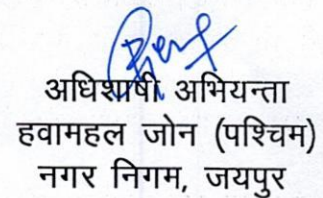 अधिशाषी अभियन्ता
हवामहल जोन (पश्चिम)
नगर निगम, जयपुर